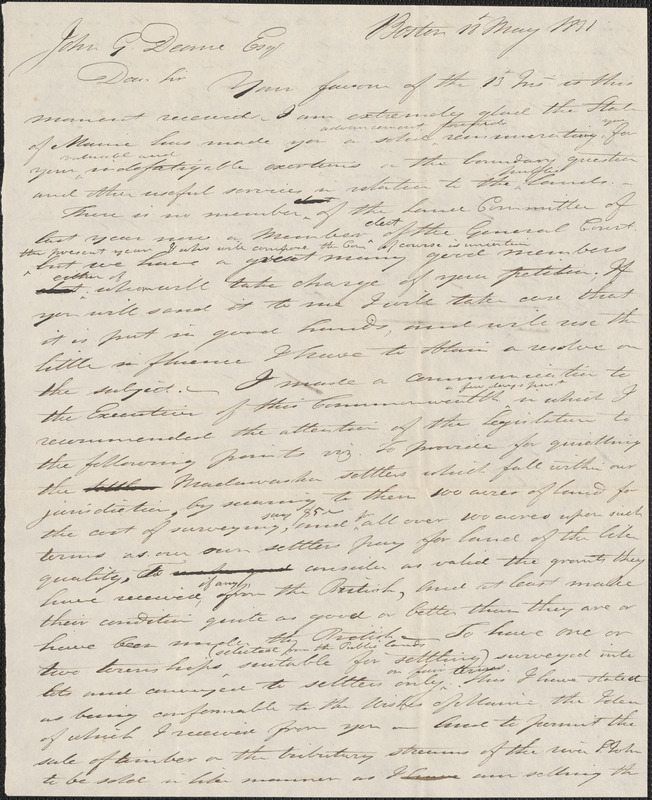 Boston 18 May 1831
John G Deane Esq
Dear Sir Your favour of the 15 Ins is this
moment received. I am extremely glad the State
of Maine has made you a advancement towards remunerating you for
your valuable and indefatigable exertions on the boundary question
and other useful services in relation to the public lands. -
There is no member elect of the Land Committee of
last year now a Member elect of the General Court.
the present year & who will compose the Com of course is uncertain
but we have a great many good members
either of who will take charge of your petition. If
you will send it to me I will take care that
it is put in good hands, and will use the
little influence I have to obtain a resolve on
the subject. - I made a communication to
the Executive of this Commonwealth a few days past in which I
recommended the attention of the Legislature to
the following points viz. To provide for quieting
the Madawaska settlers which fall within our
jurisdiction, by securing to them 100 acres of land for
the cost of surveying, say $5 and all over 100 acres upon such
terms as our own settlers pay for land of the like
quality, To consider as valid the grants they
have received, if any, from the British, and at least make
their condition quite as good or better than they are or
have been under the British - To have one or
two townships (selected from the Public lands suitable for settling) surveyed into
lots and conveyed to settlers only on fair terms. This I have stated
as being conformable to the wishes of Maine, the Idea
of which I received from you - And to permit the
sale of timber on the tributary streams of the river St John
to be sold in like manner as I am selling the